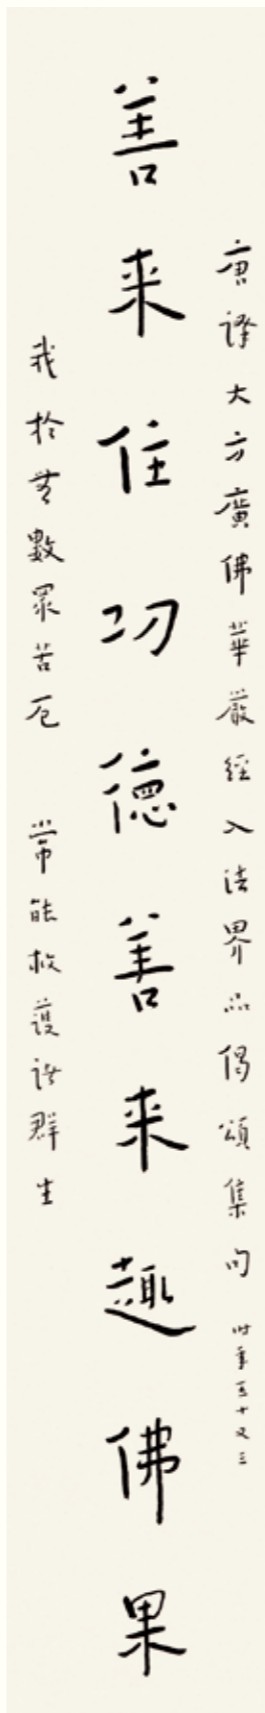 唐譯大方廣佛華嚴經入法界品偈頌集句 時年五十又三
善来住功德善来趣佛果
我於無數眾苦厄 常能救護諸群生